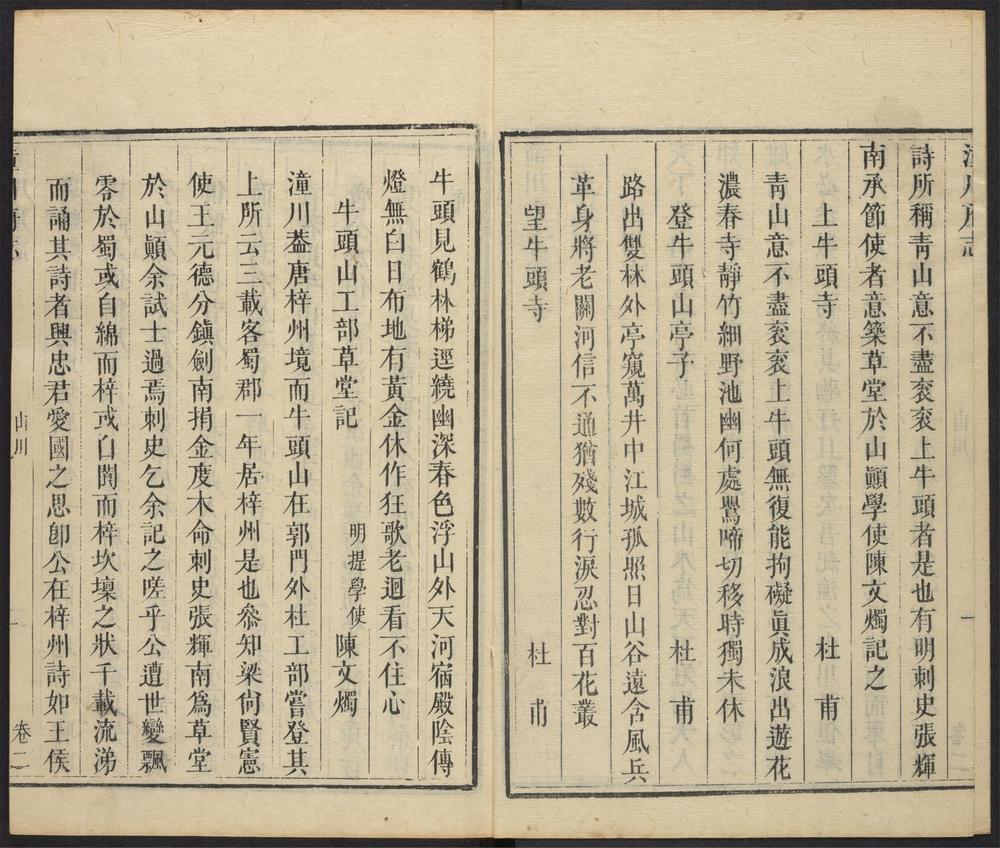 潼川府志
詩所稱青山意不盡衮衮上牛頭者是也有明刺史張輝
南承節使者意築草堂於山顚學使陳文燭記之
上牛頭寺 杜甫
青山意不盡衮衮上牛頭無復能拘礙眞成浪出遊花
濃春寺靜竹細野池幽何處鸎啼切移時獨未休
登牛頭山亭子 杜甫
路出雙林外亭窺萬井中江城孤照日山谷遠含風兵
革身將老關河信不通猶殘數行淚忍對百花叢
望牛頭寺 杜甫
牛頭見鶴林梯逕繞幽深春色浮山外天河宿殿陰傳
燈無白日布地有黃金休作狂歌老迴看不住心
牛頭山工部草堂記 明提學使 陳文燭
潼川葢唐梓州境而牛頭山在郭門外杜工部嘗登其
上所云三載客蜀郡一年居梓州是也叅知梁尙賢憲
使王元德分鎭劍南捐金度木命刺史張輝南爲草堂
於山顚余試士過焉刺史乞余記之嗟乎公遭世變飄
零於蜀或自綿而梓或自閬而梓坎壈之狀千載流涕
而誦其詩者興忠君愛國之思卽公在梓州詩如王侯
山川
卷二